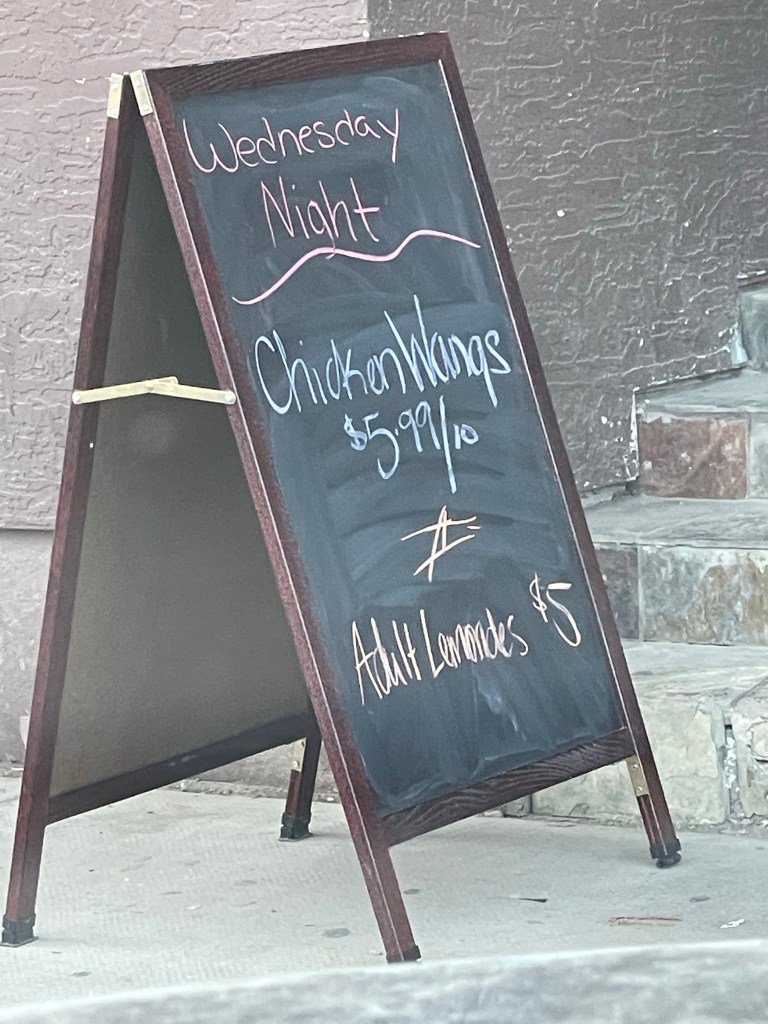 Wednesday
Night
Chicken Wangs
$5.99/10
Adult Lemondes $5